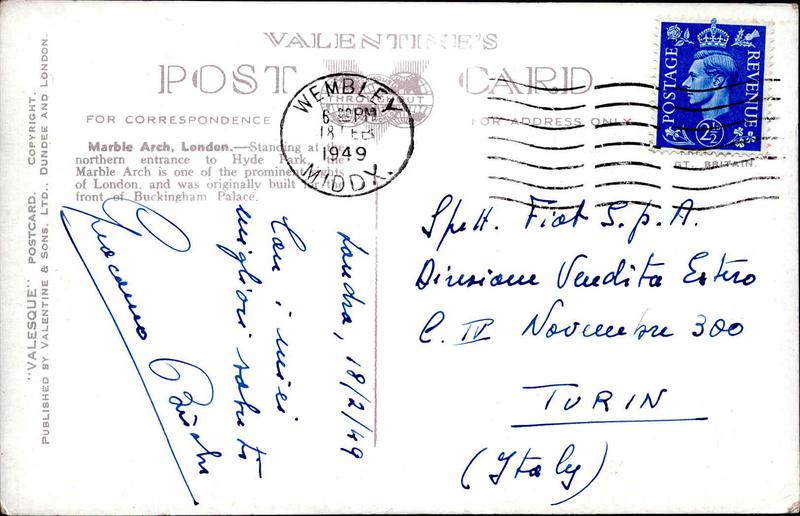 VALENTINE'S
POST CARD
THROUGHOUT
FOR CORRESPONDENCE
FOR ADDRESS ONLY
Marble Arch, London.—Standing at
northern entrance to Hyde Park,
Marble Arch is one of the prominent sights
of London, and was originally built for the
front of Buckingham Palace.
WEMBLEY
6 30PM
18 FEB
1949
MIDDX.
POSTAGE
REVENUE
2½D
GT. BRITAIN.
"VALESQUE" POSTCARD. COPYRIGHT.
PUBLISHED BY VALENTINE & SONS, LTD., DUNDEE AND LONDON.
Londra, 18/2/49
Con i miei
migliori saluti
Giacomo
Spett. Fiat S.p.A.
Direzione Vendita Estero
C. IV Novembre 300
TURIN
(Italy)